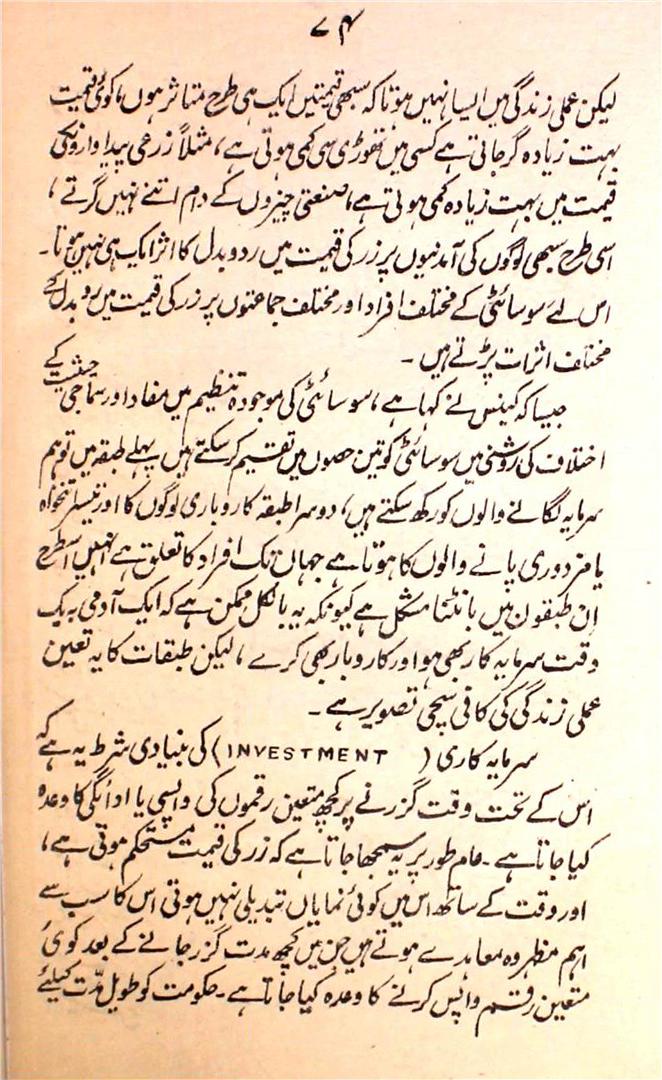 ۷۴
لیکن عملی زندگی میں ایسا نہیں ہوتا کہ سبھی قیمتیں ایک ہی طرح متاثر ہوں، کوئی قیمت
بہت زیادہ گر جاتی ہے کسی میں تھوڑی سی کمی ہوتی ہے، مثلاً زرعی پیداوار کی
قیمت میں بہت زیادہ کمی ہوتی ہے، صنعتی چیزوں کے دام اتنے نہیں گرتے،
اسی طرح سبھی لوگوں کی آمدنیوں پر زر کی قیمت میں ردوبدل کا اثر ایک ہی نہیں ہوتا۔
اس لئے سوسائٹی کے مختلف افراد اور مختلف جماعتوں پر زر کی قیمت میں ردوبدل کے
مختلف اثرات پڑتے ہیں۔
جیسا کہ کینس نے کہا ہے، سوسائٹی کی موجودہ تنظیم میں مفاد اور سماجی حیثیت کے
اختلاف کی روشنی میں سوسائٹی کو تین حصوں میں تقسیم کر سکتے ہیں۔ پہلے طبقہ میں تو ہم
سرمایہ لگانے والوں کو رکھ سکتے ہیں، دوسرا طبقہ کاروباری لوگوں کا اور تیسرا تنخواہ
یا مزدوری پانے والوں کا ہوتا ہے جہاں تک افراد کا تعلق ہے انہیں اسطرح
ان طبقوں میں بانٹنا مشکل ہے کیونکہ یہ بالکل ممکن ہے کہ ایک آدمی بہ یک
وقت سرمایہ کار بھی ہو اور کاروبار بھی کرے، لیکن طبقات کا یہ تعین
عملی زندگی کی کافی سچی تصویر ہے۔
سرمایہ کاری (INVESTMENT) کی بنیادی شرط یہ ہے کہ
اس کے تحت وقت گزرنے پر کچھ متعین رقموں کی واپسی یا ادائگی کا وعدہ
کیا جاتا ہے۔ عام طور پر یہ سمجھا جاتا ہے کہ زر کی قیمت مستحکم ہوتی ہے،
اور وقت کے ساتھ اس میں کوئی نمایاں تبدیلی نہیں ہوتی اس کا سب سے
اہم مظہر وہ معاہدے ہوتے ہیں جن میں کچھ مدت گزر جانے کے بعد کوئی
متعین رقم واپس کرنے کا وعدہ کیا جاتا ہے۔ حکومت کو طویل مدّت کیلئے